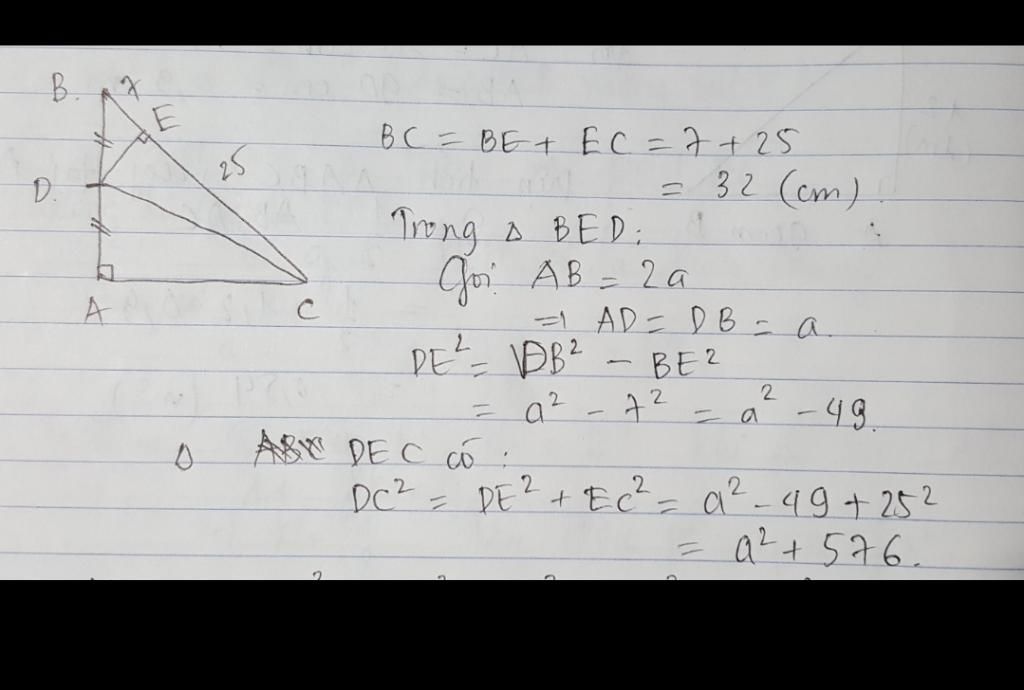 B. 7
E
25
D.
A
C
BC = BE + EC = 7 + 25
= 32 (cm).
Trong △ BED:
Gọi AB = 2a
=> AD = DB = a.
DE² = DB² - BE²
= a² - 7² = a² - 49.
△ DEC có :
DC² = DE² + EC² = a² - 49 + 25²
= a² + 576.